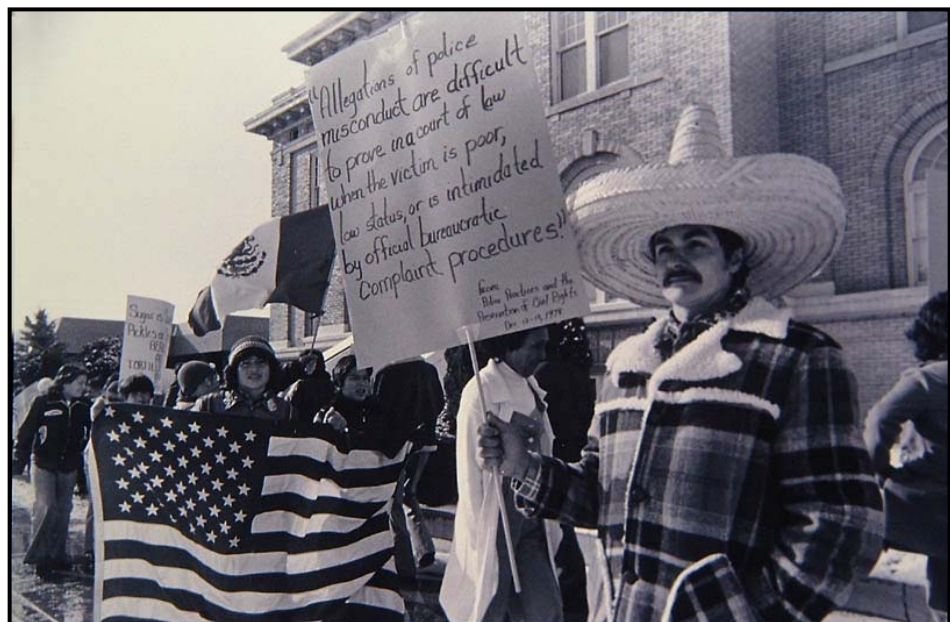 "Allegations of police
misconduct are difficult
to prove in a court of law
when the victim is poor,
low status, or is intimidated
by official bureaucratic
complaint procedures."
from:
Police Practices and the
Preservation of Civil Rights
Dec. 12-13, 1978
Sugar is
Pickles